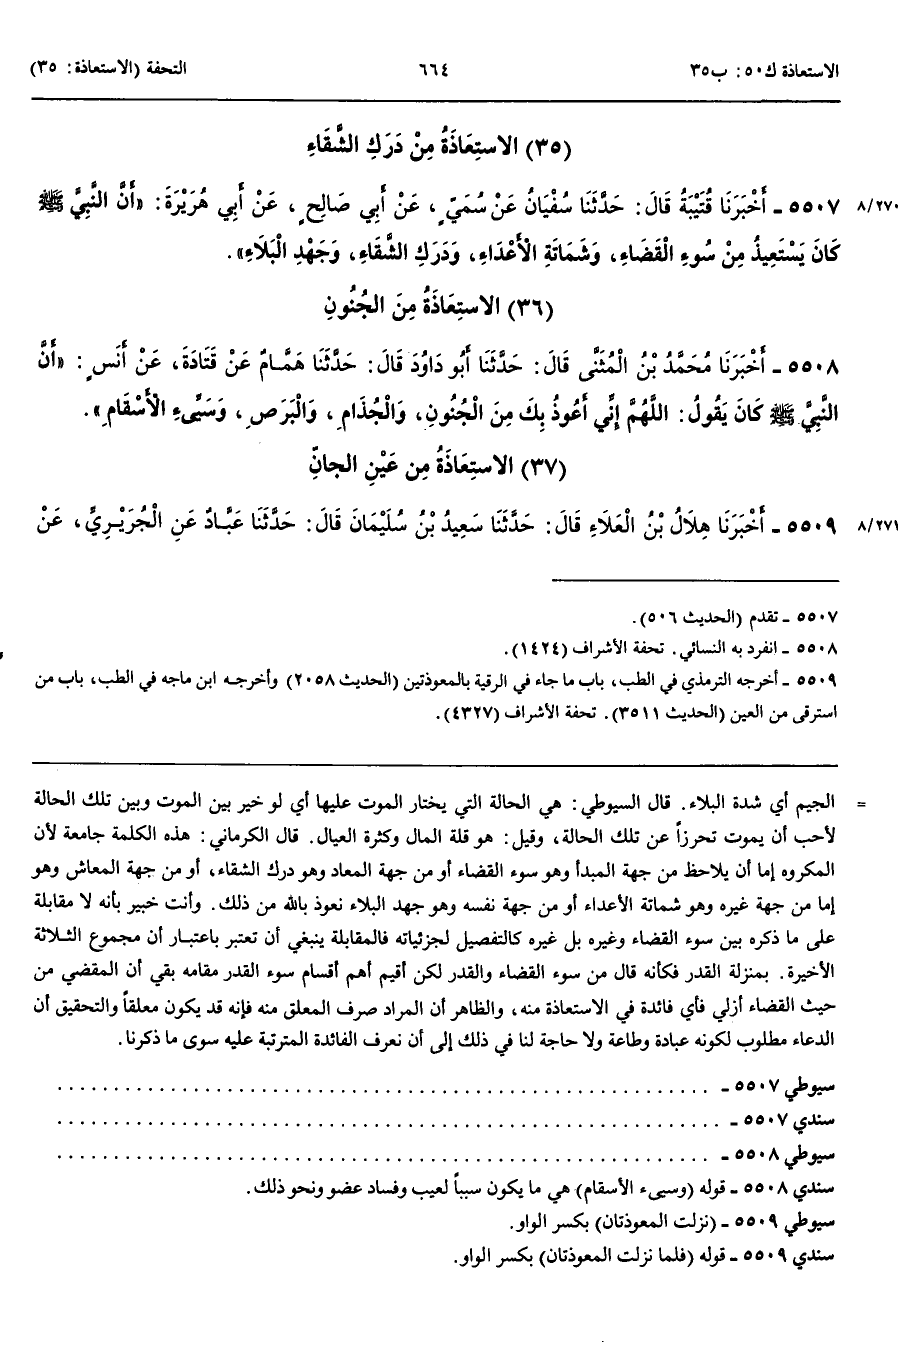 الاستعاذة ك٥٠: ب٣٥ ٦٦٤ التحفة (الاستعاذة: ٣٥)
(٣٥) الاستِعَاذَةُ مِنْ دَرَكِ الشَّقَاءِ
٨/٢٧٠ ٥٥٠٧ ـ أَخْبَرَنَا قُتَيْبَةُ قَالَ: حَدَّثَنَا سُفْيَانُ عَنْ سُمَيٍّ، عَنْ أَبِي صَالِحٍ، عَنْ أَبِي هُرَيْرَةَ: «أَنَّ النَّبِيَّ ﷺ
كَانَ يَسْتَعِيذُ مِنْ سُوءِ الْقَضَاءِ، وَشَمَاتَةِ الْأَعْدَاءِ، وَدَرَكِ الشَّقَاءِ، وَجَهْدِ الْبَلَاءِ».
(٣٦) الاستِعَاذَةُ مِنَ الجُنُونِ
٥٥٠٨ ـ أَخْبَرَنَا مُحَمَّدُ بْنُ الْمُثَنَّى قَالَ: حَدَّثَنَا أَبُو دَاوُدَ قَالَ: حَدَّثَنَا هَمَّامٌ عَنْ قَتَادَةَ، عَنْ أَنَسٍ: «أَنَّ
النَّبِيَّ ﷺ كَانَ يَقُولُ: اللَّهُمَّ إِنِّي أَعُوذُ بِكَ مِنَ الْجُنُونِ، وَالْجُذَامِ، وَالْبَرَصِ، وَسَيِّىءِ الْأَسْقَامِ».
(٣٧) الاستِعَاذَةُ مِن عَيْنِ الجانِّ
٨/٢٧١ ٥٥٠٩ ـ أَخْبَرَنَا هِلَالُ بْنُ الْعَلَاءِ قَالَ: حَدَّثَنَا سَعِيدُ بْنُ سُلَيْمَانَ قَالَ: حَدَّثَنَا عَبَّادٌ عَنِ الْجُرَيْرِيِّ، عَنْ
٥٥٠٧ ـ تقدم (الحديث ٥٠٦).
٥٥٠٨ ـ انفرد به النسائي. تحفة الأشراف (١٤٢٤).
٥٥٠٩ ـ أخرجه الترمذي في الطب، باب ما جاء في الرقية بالمعوذتين (الحديث ٢٠٥٨) وأخرجه ابن ماجه في الطب، باب من
استرقى من العين (الحديث ٣٥١١). تحفة الأشراف (٤٣٢٧).
= الجيم أي شدة البلاء. قال السيوطي: هي الحالة التي يختار الموت عليها أي لو خير بين الموت وبين تلك الحالة
لأحب أن يموت تحرزاً عن تلك الحالة، وقيل: هو قلة المال وكثرة العيال. قال الكرماني: هذه الكلمة جامعة لأن
المكروه إما أن يلاحظ من جهة المبدأ وهو سوء القضاء أو من جهة المعاد وهو درك الشقاء، أو من جهة المعاش وهو
إما من جهة غيره وهو شماتة الأعداء أو من جهة نفسه وهو جهد البلاء نعوذ بالله من ذلك. وأنت خبير بأنه لا مقابلة
على ما ذكره بين سوء القضاء وغيره بل غيره كالتفصيل لجزئياته فالمقابلة ينبغي أن تعتبر باعتبار أن مجموع الثلاثة
الأخيرة. بمنزلة القدر فكأنه قال من سوء القضاء والقدر لكن أقيم أهم أقسام سوء القدر مقامه بقي أن المقضي من
حيث القضاء أزلي فأي فائدة في الاستعاذة منه، والظاهر أن المراد صرف المعلق منه فإنه قد يكون معلقاً والتحقيق أن
الدعاء مطلوب لكونه عبادة وطاعة ولا حاجة لنا في ذلك إلى أن نعرف الفائدة المترتبة عليه سوى ما ذكرنا.
سيوطي ٥٥٠٧ ـ . . . . . . . . . . . . . . . . . . . .
سندي ٥٥٠٧ ـ . . . . . . . . . . . . . . . . . . . .
سيوطي ٥٥٠٨ ـ . . . . . . . . . . . . . . . . . . . .
سندي ٥٥٠٨ ـ قوله (وسيىء الأسقام) هي ما يكون سبباً لعيب وفساد عضو ونحو ذلك.
سيوطي ٥٥٠٩ ـ (نزلت المعوذتان) بكسر الواو.
سندي ٥٥٠٩ ـ قوله (فلما نزلت المعوذتان) بكسر الواو.